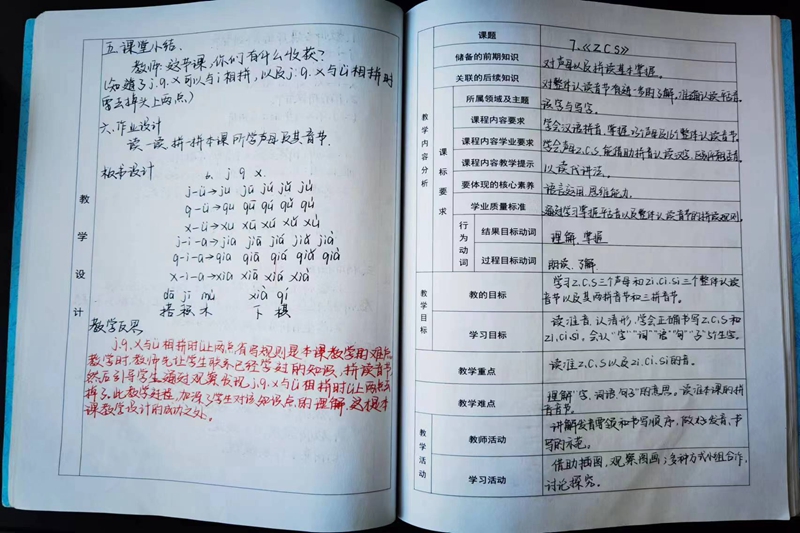 五.课堂小结.
教师:这节课,你们有什么收获?
(知道了j.q.x可以与i相拼,以及j.q.x与ü相拼时
要去掉头上两点)
六.作业设计
读一读,拼一拼本课所学声母及其音节.
板书设计
6. j q x
j-ü→ju jū jú jǔ jù
q-ü→qu qū qú qǔ qù
x-ü→xu xū xú xǔ xù
j-i-a→jia jiā jiá jiǎ jià
q-i-a→qia qiā qiá qiǎ qià
x-i-a→xia xiā xiá xiǎ xià
dā jī mù xià qí
搭积木 下棋
教学反思
j.q.x与ü相拼时ü上两点省写规则是本课教学的难点
教学时,教师先让学生联系已经学过的知识,拼读音节,
然后引导学生通过观察发现j.q.x与ü相拼时ü上两点去
掉了,此教学过程,加深了学生对该知识点的理解.这是本
课教学设计的成功之处.
教学设计
课题 7.《Z C S》
储备的前期知识 对声母以及拼读基本掌握.
关联的后续知识 对整体认读音节有进一步的了解.准确认读平舌音.
教学内容分析
课标要求
所属领域及主题 识字与写字.
课程内容要求 学会汉语拼音.掌握23个声母及16个整体认读音节.
课程内容学业要求 学会声母z.c.s,能借助拼音认读汉字,
课程内容教学提示 以读代讲法.
要体现的核心素养 语言运用.思维能力.
学业质量标准 通过学习掌握平舌音以及整体认读音节的拼读规则.
行为动词
结果目标动词 理解.掌握
过程目标动词 朗读.了解.
教学目标
教的目标 学习z.c.s三个声母和zi.ci.si三个整体认读
音节以及其两拼音节和三拼音节.
学习目标 读准音,认清形,学会正确书写z.c.s和
zi.ci.si,会认“字”“词”“语”“句”“子”5个生字.
教学重点 读准z.c.s以及zi.ci.si的音.
教学难点 理解“字、词语、句子”的意思.读准本课的拼
音音节.
教学活动
教师活动 讲解发音要领和书写顺序,做好发音、书
写的示范.
学习活动 借助插图,观察图画;多种方式小组合作,
讨论探究.